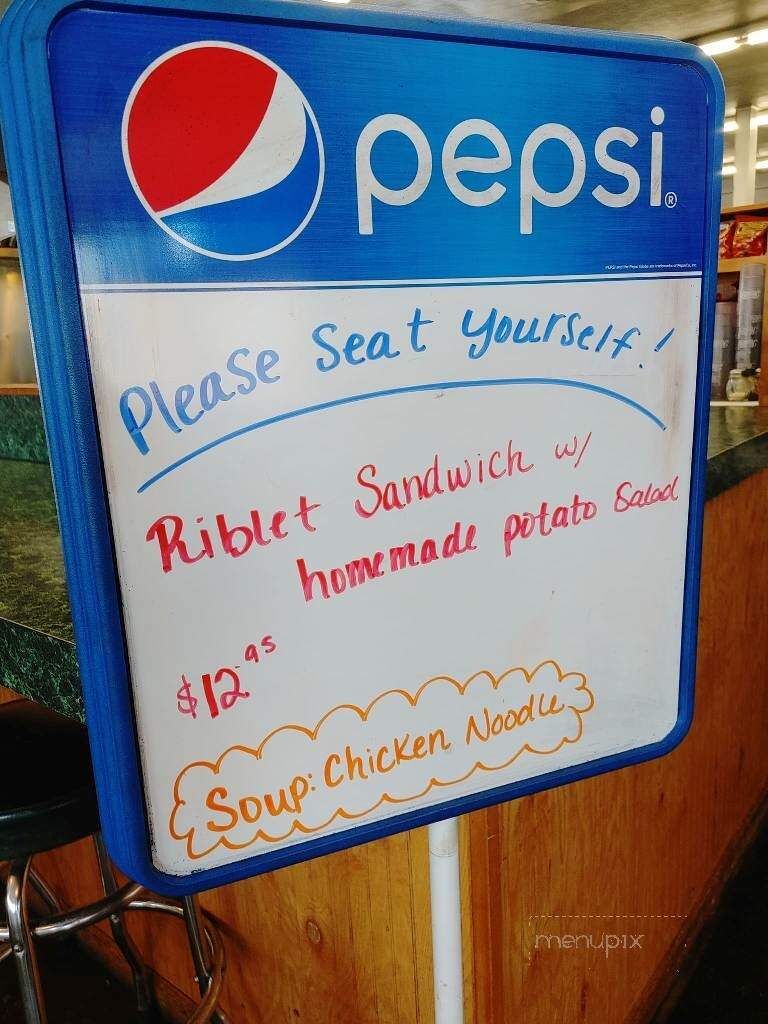 pepsi®
Please Seat Yourself!
Riblet Sandwich w/
homemade potato Salad
$12.95
Soup: Chicken Noodle
menupix